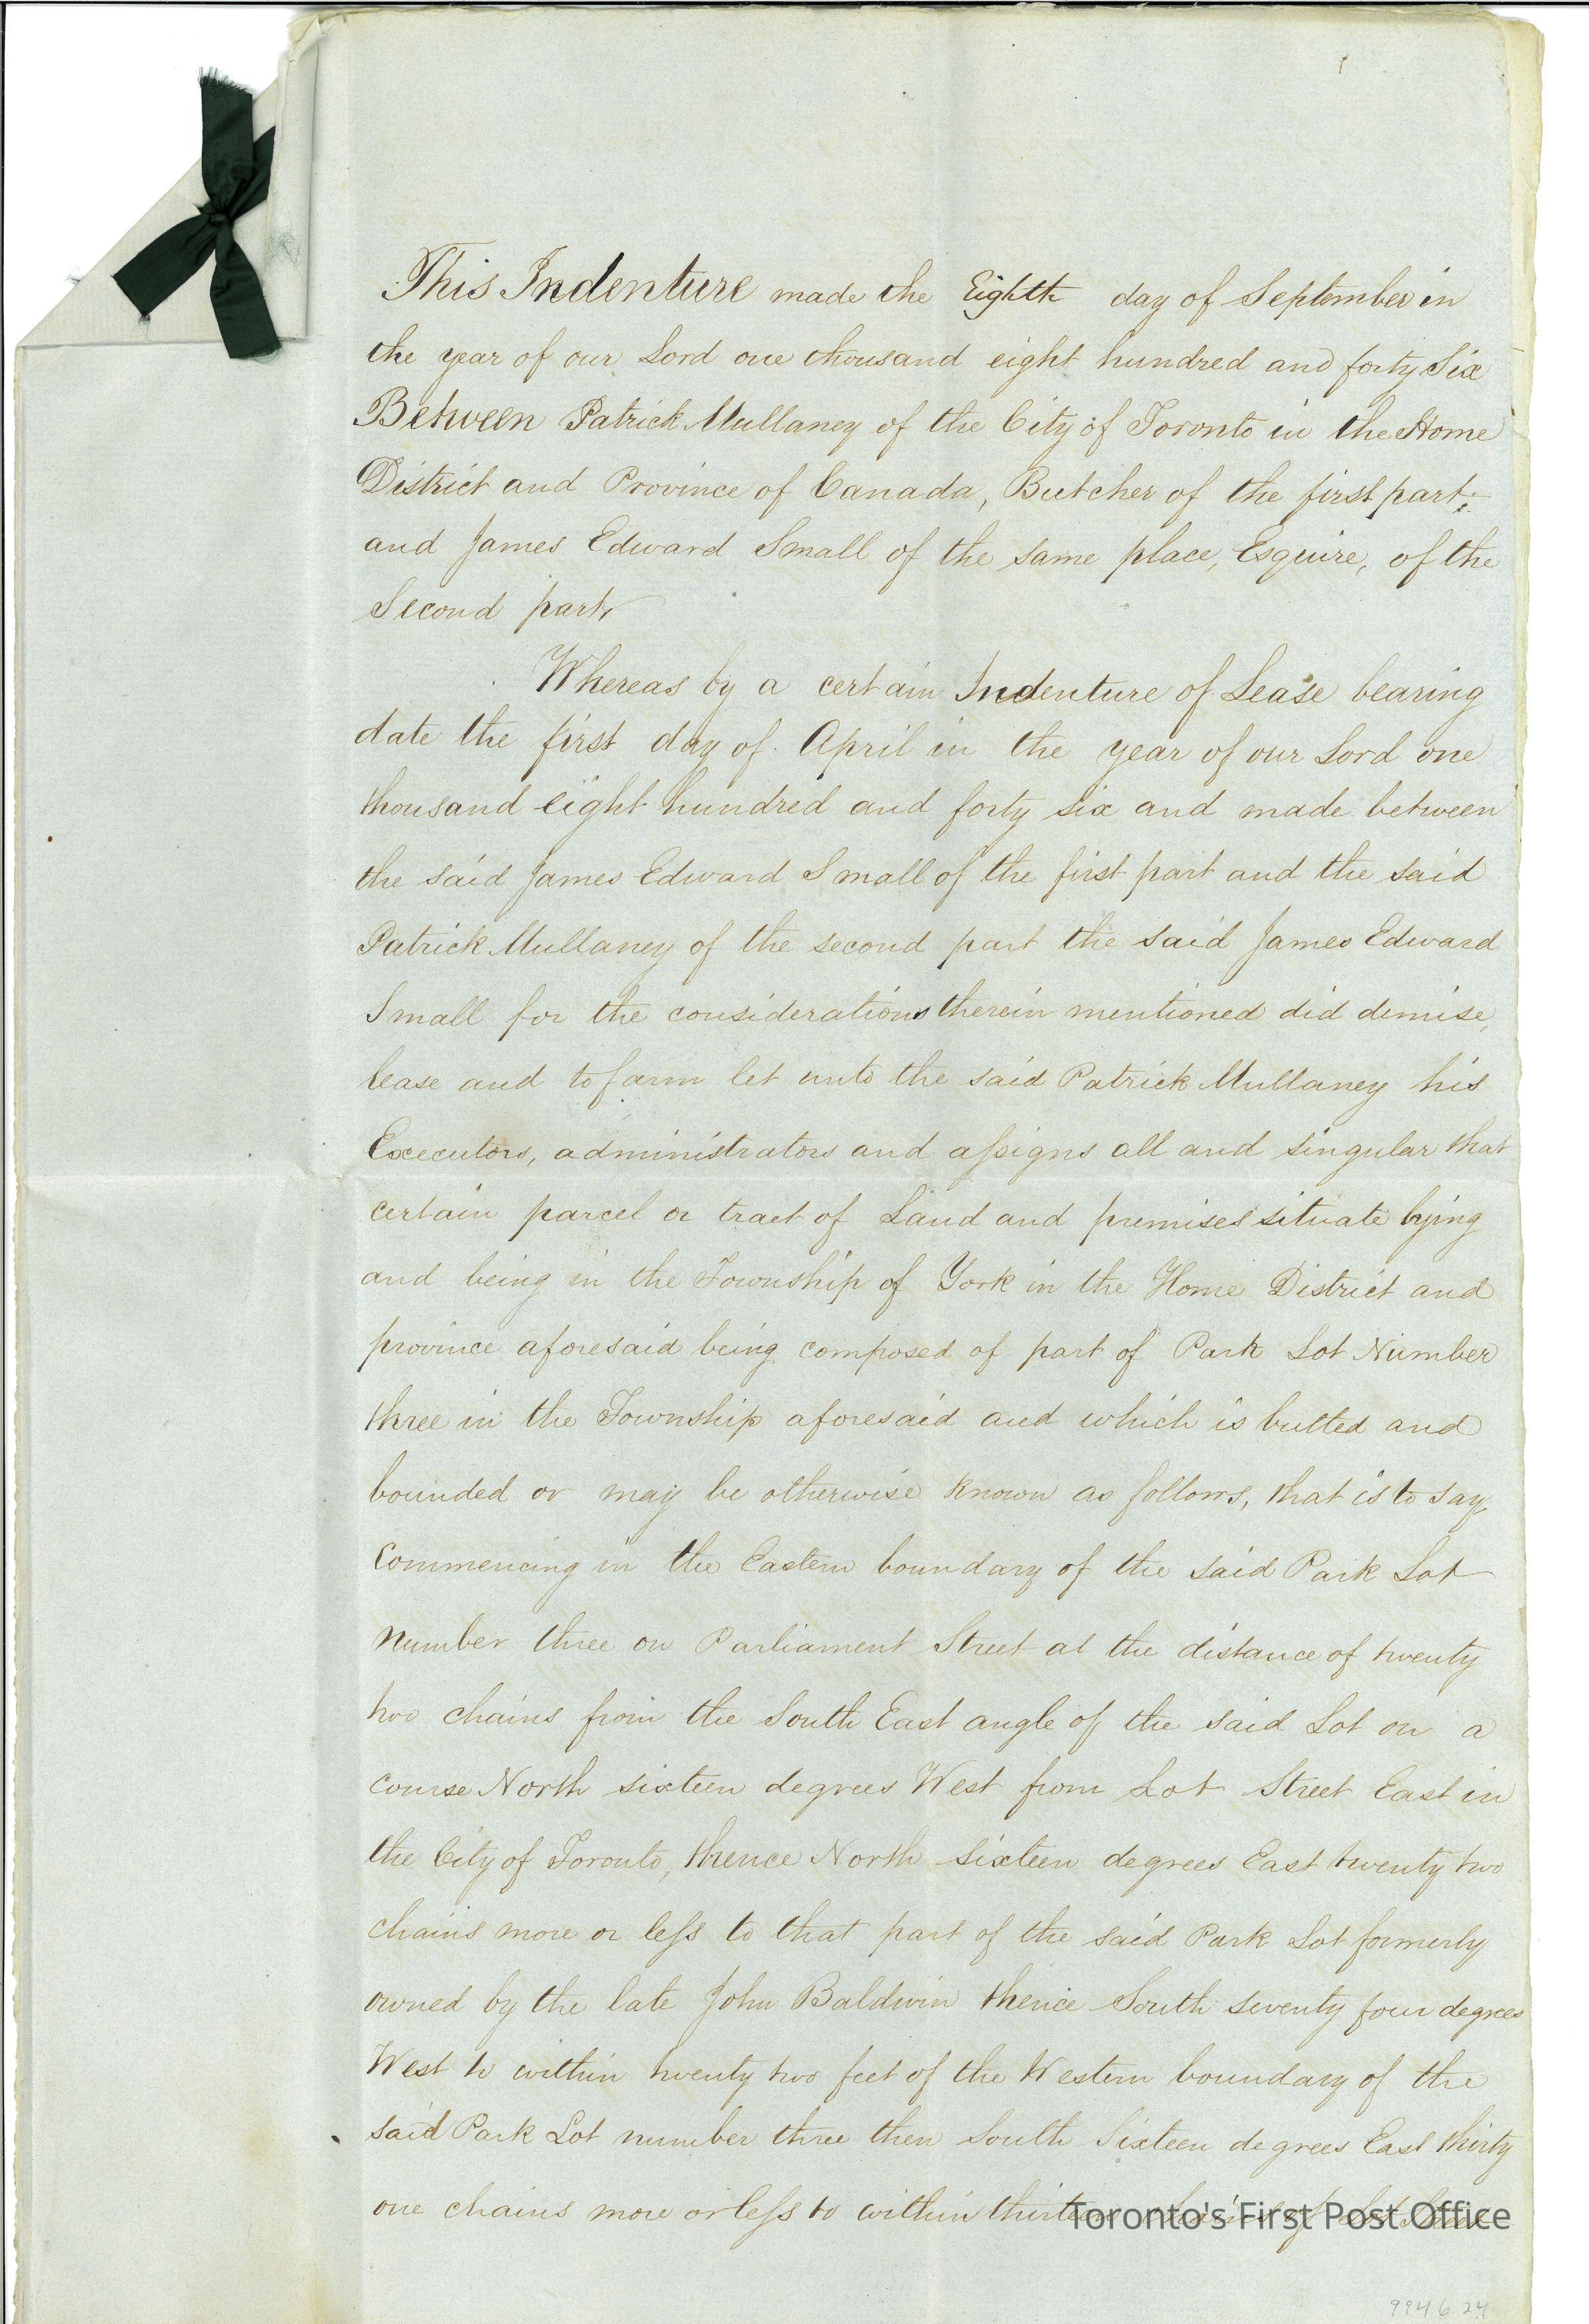 This Indenture made the Eighth day of September in
the year of our Lord one thousand eight hundred and forty Six
Between Patrick Mullaney of the City of Toronto in the Home
District and Province of Canada, Butcher of the first part;
and James Edward Small of the same place, Esquire, of the
Second part,
Whereas by a certain Indenture of Lease bearing
date the first day of April in the year of our Lord one
thousand eight hundred and forty six and made between
the said James Edward Small of the first part and the said
Patrick Mullaney of the second part the said James Edward
Small for the considerations therein mentioned did demise,
lease and to farm let unto the said Patrick Mullaney his
Executors, administrators and assigns all and singular that
certain parcel or tract of Land and premises situate lying
and being in the Township of York in the Home District and
province aforesaid being composed of part of Park Lot Number
three in the Township aforesaid and which is butted and
bounded or may be otherwise known as follows, that is to say,
Commencing in the Eastern boundary of the said Park Lot
number three on Parliament Street at the distance of twenty
two chains from the South East angle of the said Lot on a
course North sixteen degrees West from Lot Street East in
the City of Toronto, thence North sixteen degrees East twenty two
chains more or less to that part of the said Park Lot formerly
owned by the late John Baldwin thence South seventy four degrees
West to within twenty two feet of the Western boundary of the
said Park Lot number three then South Sixteen degrees East thirty
one chains more or less to within thirteen chains of Lot Street
Toronto's First Post Office
994.6.24